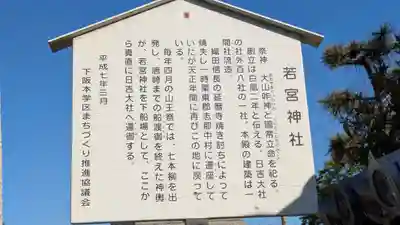 若宮神社
祭神 大山咋神と國常立命を祀る。
創立は白鳳二年と伝える、日吉大社
の社外百八社の一社、本殿の建築は一
間社流造。
織田信長の延暦寺焼き討ちによって
焼失し一時栗東郡志那中村に遷座して
いたが天正年間に再びこの地に戻って
いる。
毎年四月の山王祭では、七本柳を出
発し、唐崎までの船渡御を終えた神輿
が、若宮神社を下船場として、ここか
ら真直に日吉大社へ還御する。
平成七年三月
下阪本学区まちづくり推進協議会